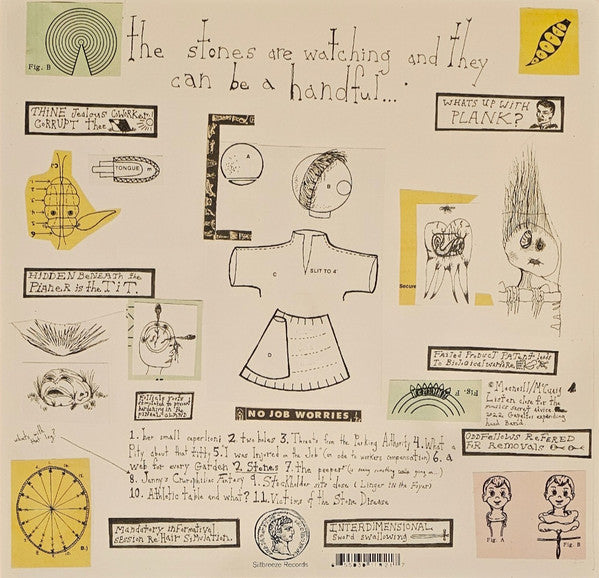 the stones are watching and they
can be a handful...
Fig. B
THINE Jealous Coworker/
CORRUPT thee
WHATS UP WITH
PLANK?
TONGUE
E
A
B
C
SLIT TO 4"
D
Secure
HIDDEN BENEATH the
PlaneR is the TiT.
hardening in the
pineal GLAND
NO JOB WORRIES
Failed Product Patent leads
to Biological warfare
Fig. d
© Macneill/McCaig
Listen close for the
hand Band
ODDFellows REFERED
FoR Removals
what's with
1. her small caper(ion) 2. two holes 3. Threats from the Parking Authority 4. What a
Pity about that titty 5. I was Injured on the Job (an ode to workers compensation) 6. a
web for every Garden 7. Stones 7. the peeper
8. Janny's Fantasy 9. Stockholder sits alone (Linger IN the Foyer)
10. Athletic table and what? 11. Victims of the Stone Disease
B.)
Mandatory informative
session Re/Hair Simulation.
INTERDIMENSIONAL
sword swallowing
Siltbreeze Records
Fig. A
Fig. B